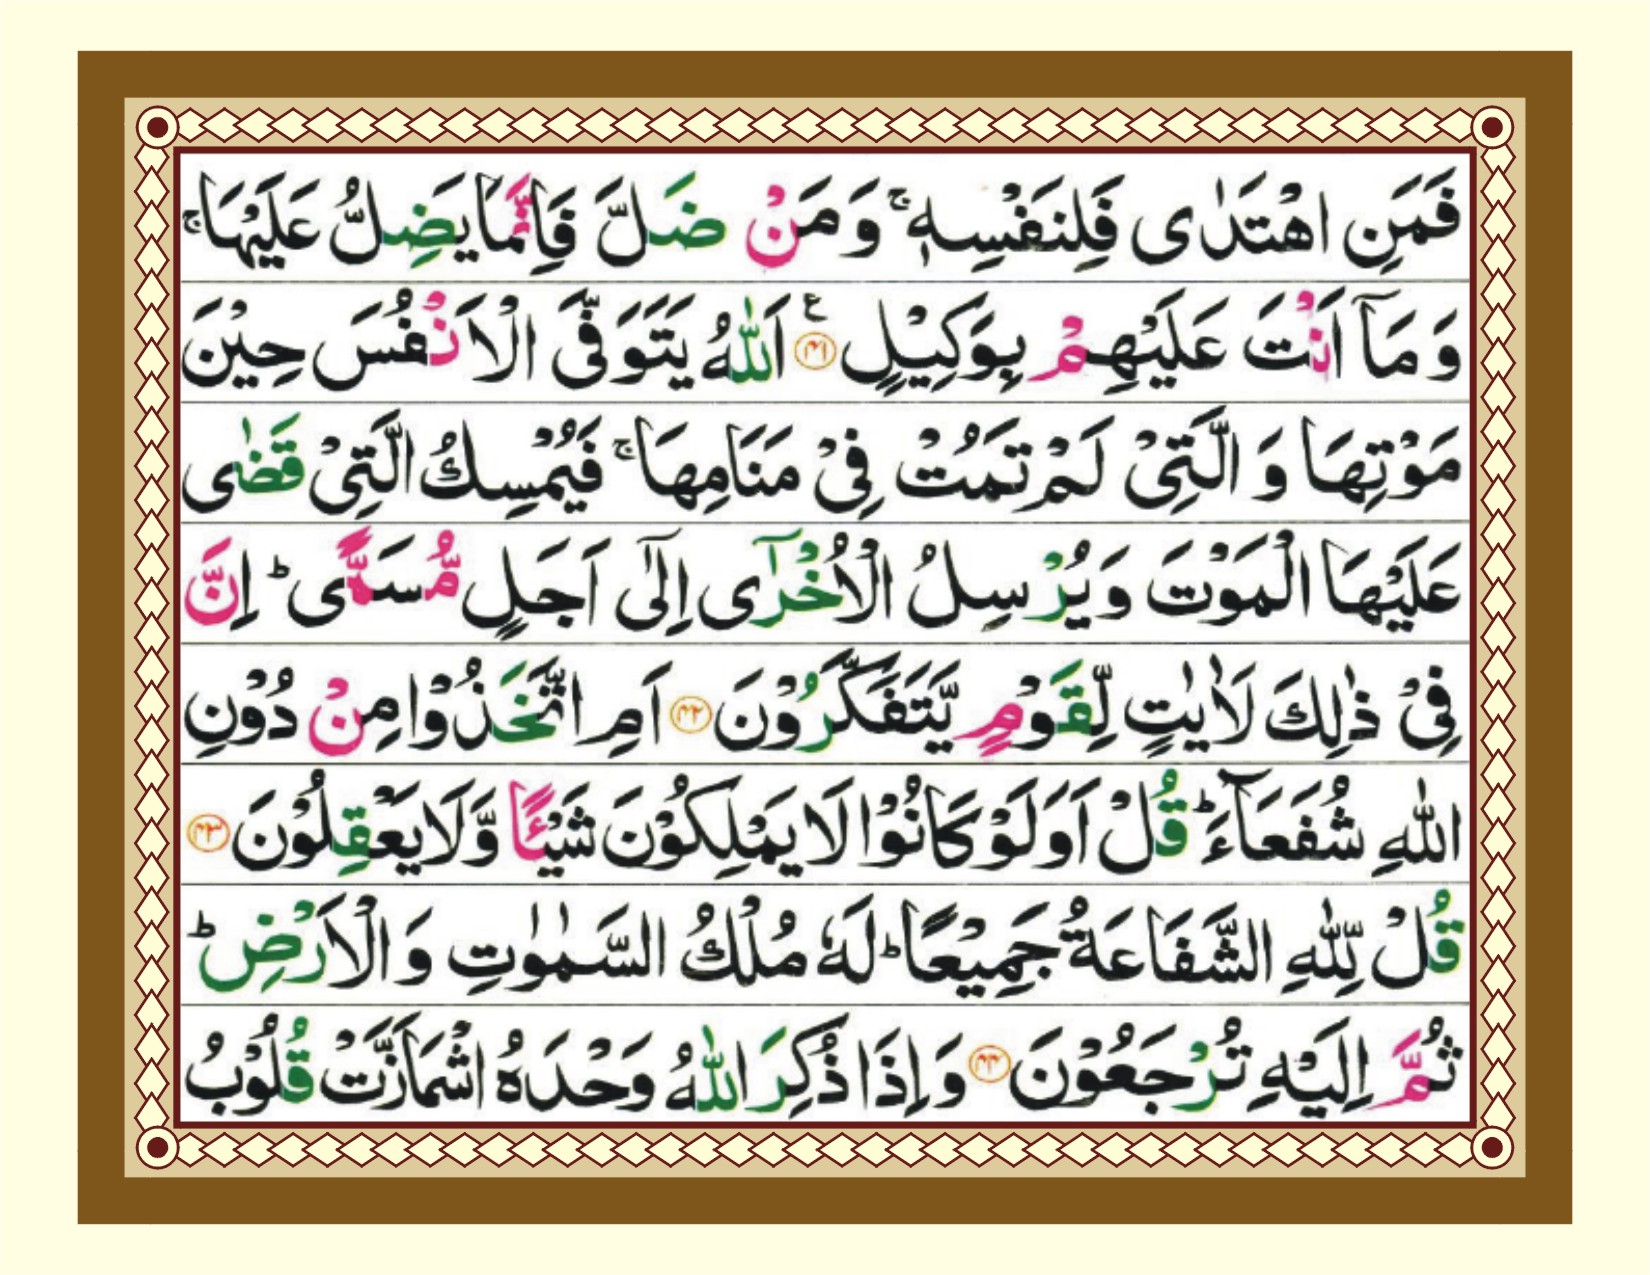 فَمَنِ اهْتَدٰى فَلِنَفْسِهٖ ۚ وَ مَنْ ضَلَّ فَاِنَّمَا يَضِلُّ عَلَيْهَا ۚ
وَ مَاۤ اَنْتَ عَلَيْهِمْ بِوَكِيْلٍ ﴿۴۱﴾ ع اَللّٰهُ يَتَوَفَّى الْاَنْفُسَ حِيْنَ
مَوْتِهَا وَ الَّتِيْ لَمْ تَمُتْ فِيْ مَنَامِهَا ۚ فَيُمْسِكُ الَّتِيْ قَضٰى
عَلَيْهَا الْمَوْتَ وَ يُرْسِلُ الْاُخْرٰۤى اِلٰۤى اَجَلٍ مُّسَمًّى ؕ اِنَّ
فِيْ ذٰلِكَ لَاٰيٰتٍ لِّقَوْمٍ يَّتَفَكَّرُوْنَ ﴿۴۲﴾ اَمِ اتَّخَذُوْا مِنْ دُوْنِ
اللّٰهِ شُفَعَآءَ ؕ قُلْ اَوَلَوْ كَانُوْا لَا يَمْلِكُوْنَ شَيْـًٔا وَّلَا يَعْقِلُوْنَ ﴿۴۳﴾
قُلْ لِّلّٰهِ الشَّفَاعَةُ جَمِيْعًا ؕ لَهٗ مُلْكُ السَّمٰوٰتِ وَ الْاَرْضِ ؕ
ثُمَّ اِلَيْهِ تُرْجَعُوْنَ ﴿۴۴﴾ وَ اِذَا ذُكِرَ اللّٰهُ وَحْدَهُ اشْمَاَزَّتْ قُلُوْبُ